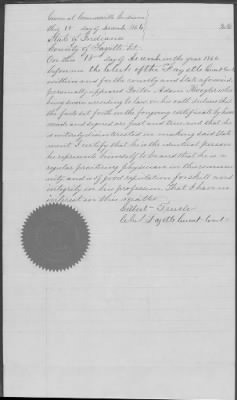 Sworn at Connersville Indiana
this 18 day of March 1864
State of Indiana
County of Fayette Ss
On this 18 day of March in the year 1864
before me the Clerk of the Fayette
within and for the county and State aforesaid
personally appeared Doctor
being sworn according to law on his oath declares that
the facts set forth in the foregoing certificate by him
made and signed are just and true and that he
is entirely disinterested in making said state
ment I certify that he is the identical person
he represents himself to be and that he is a
regular practicing physician in this commu
nity and is of good reputation for skill and
integrity in his profession. That I have no
interest in this matter
Gilbert
Clerk Fayette Court